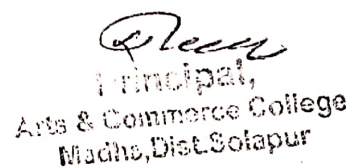 Principal,
Arts & Commerce College
Madha, Dist. Solapur